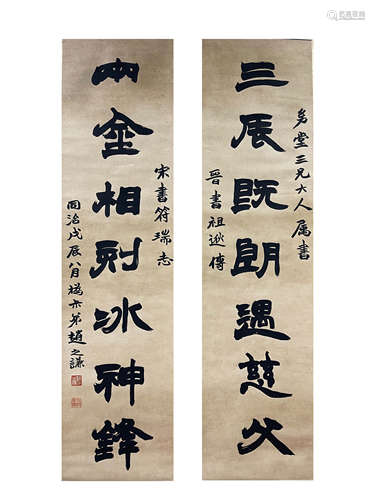 三辰既朗遇慈父
堂三兄大人属書
晉書祖逖傳
兩金相刻冰神鋒
宋書符瑞志
同治戊辰八月撝尗弟趙之謙